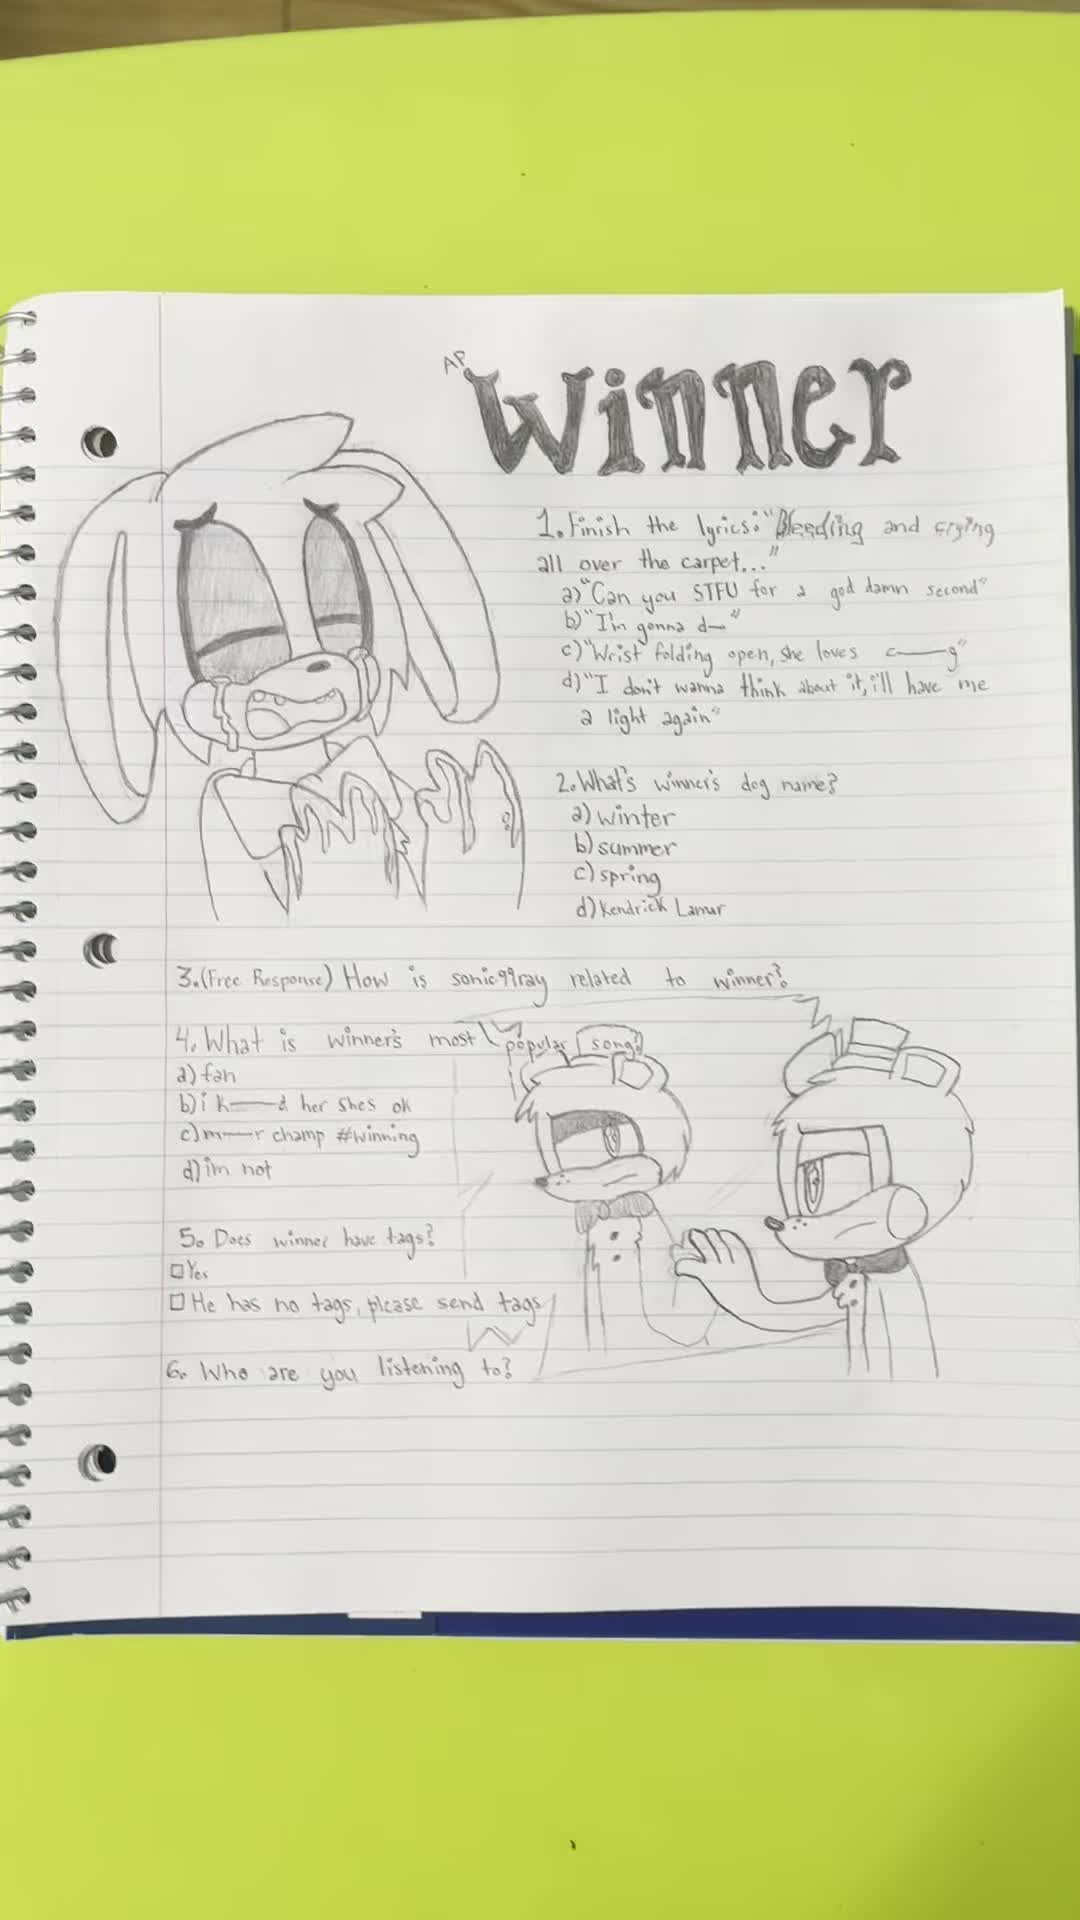 AP
Winner
1. Finish the lyrics: "Bleeding and crying
all over the carpet..."
a) "Can you STFU for a god damn second"
b) "I'm gonna d—"
c) "Wrist folding open, she loves c——g"
d) "I don't wanna think about it, i'll have me
a light again"
2. What's winner's dog name?
a) winter
b) summer
c) spring
d) Kendrick Lamar
3. (Free Response) How is sonic99ray related to winner?
4. What is winner's most popular song?
a) fan
b) i k——d her shes ok
c) m——r champ #winning
d) im not
5. Does winner have tags?
□ Yes
□ He has no tags, please send tags
6. Who are you listening to?